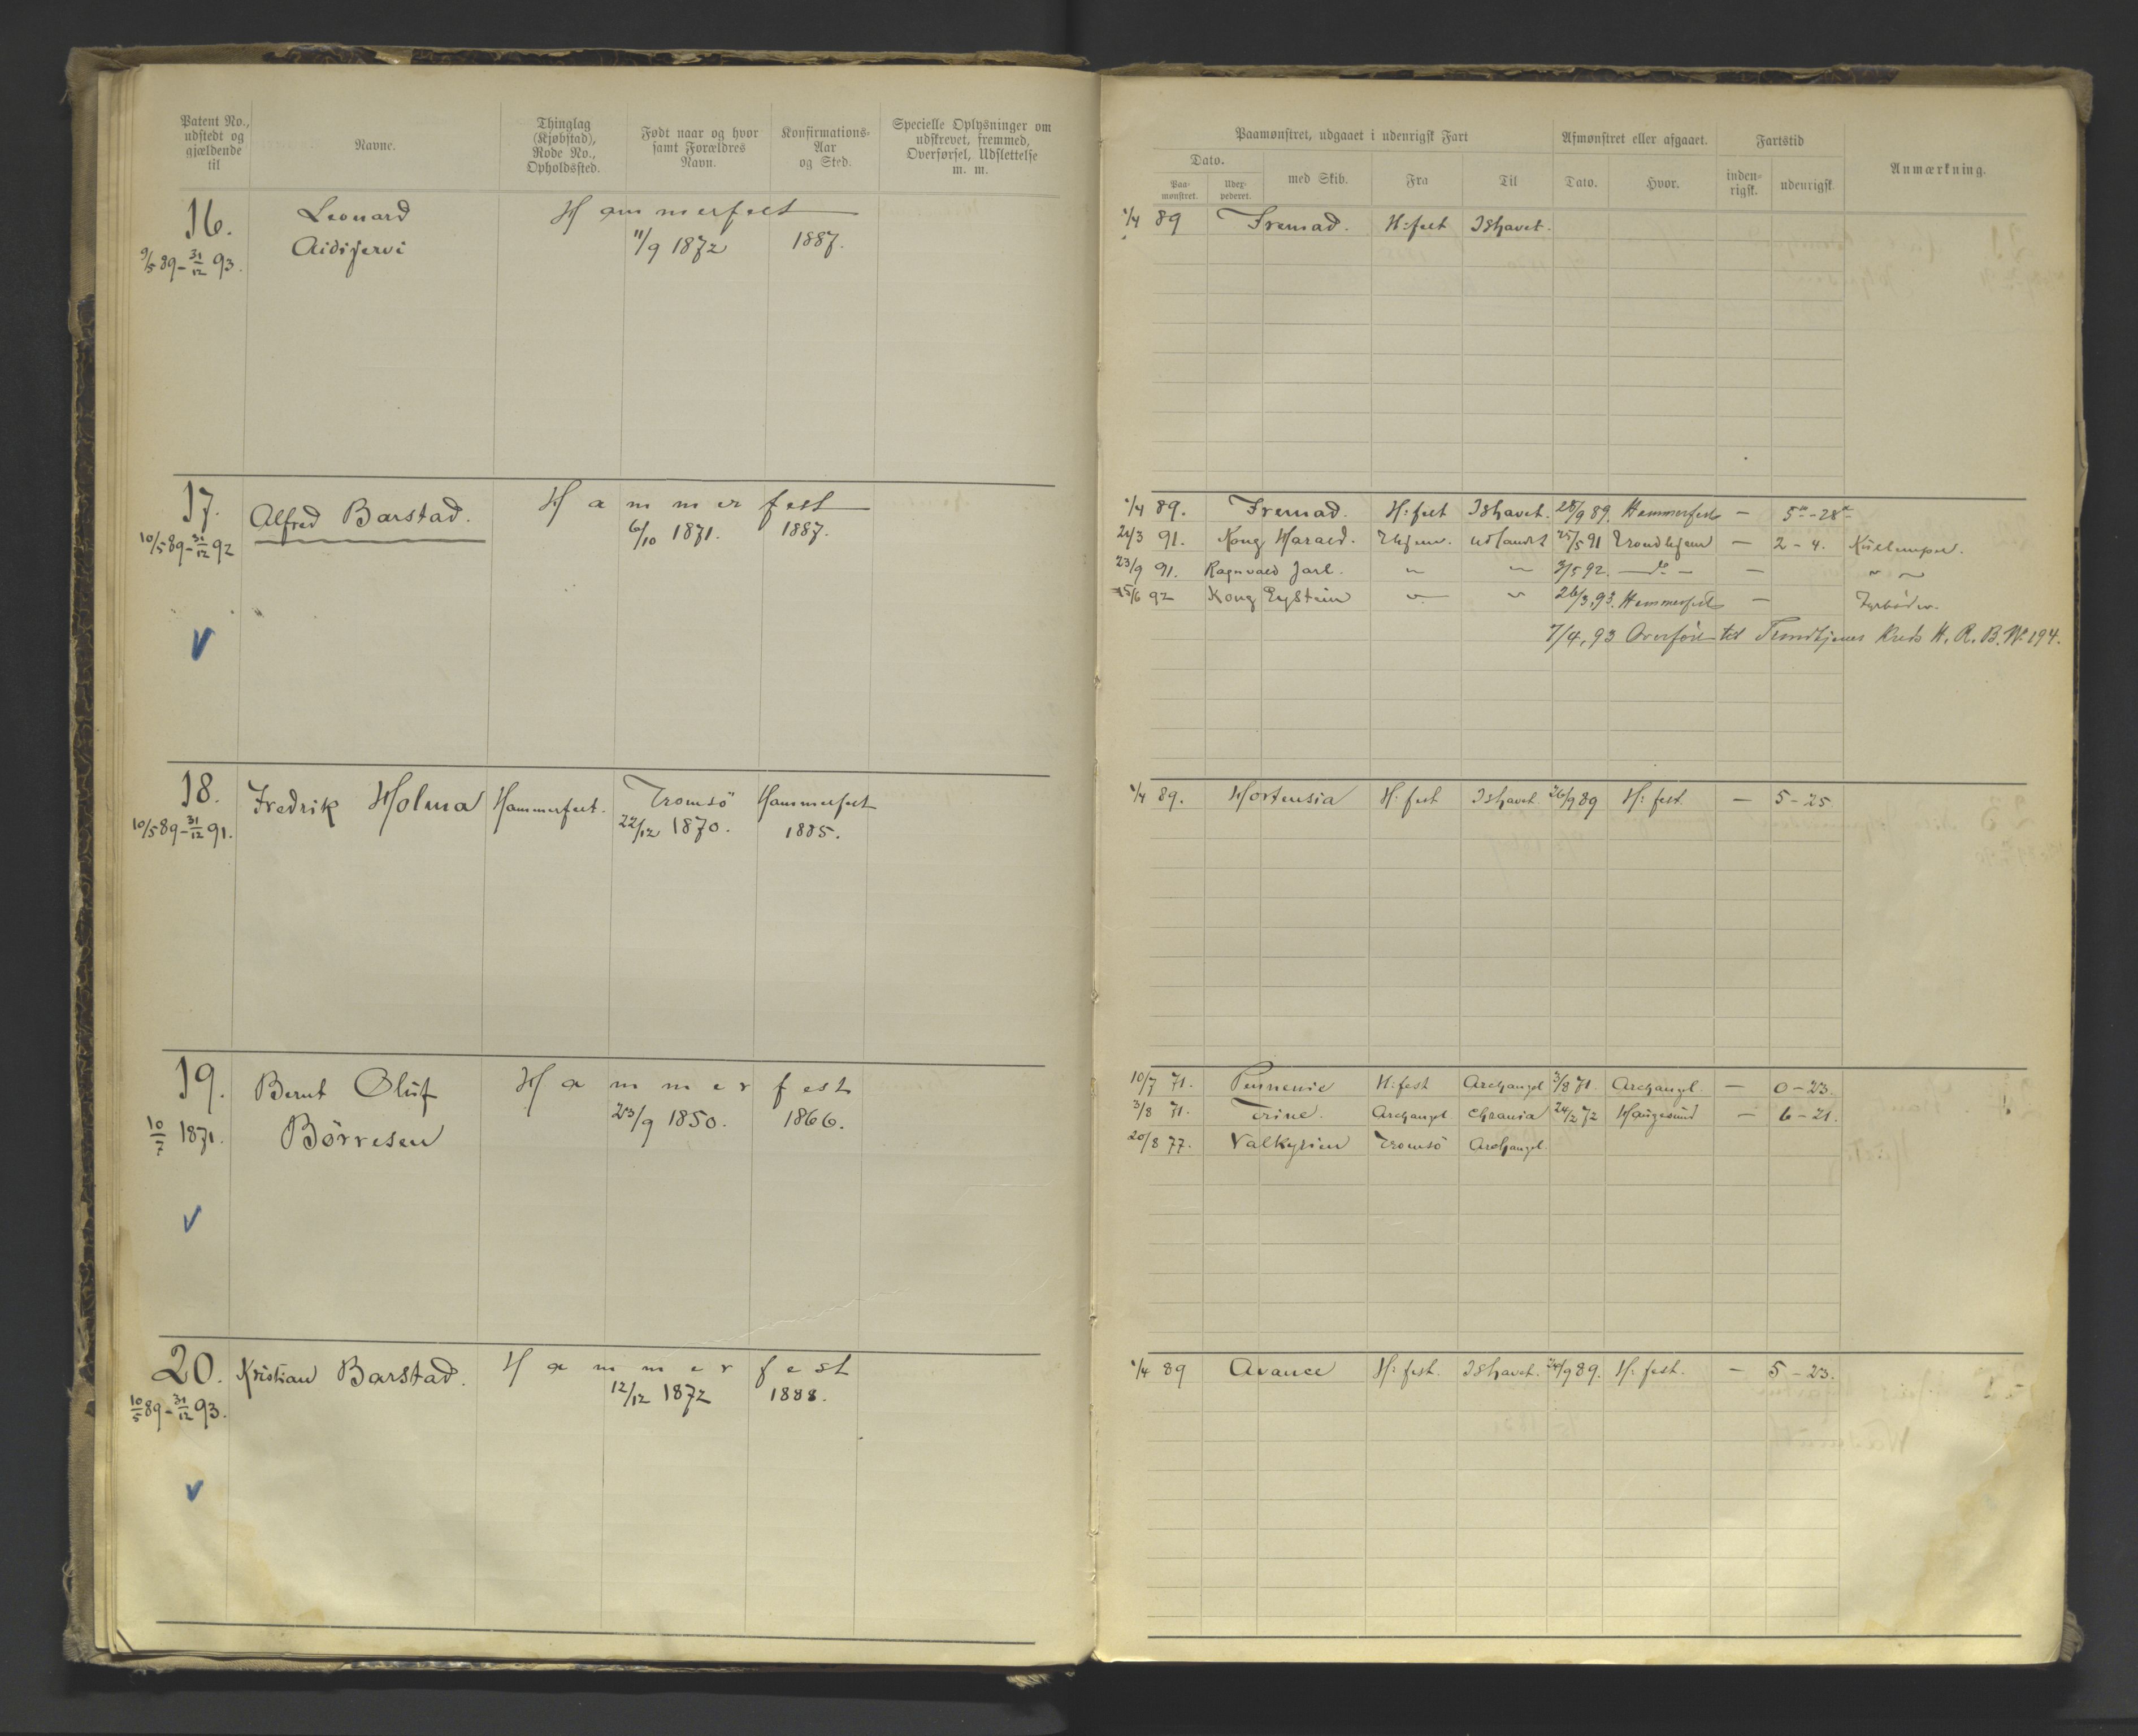 Patent No.,
udstedt og
gjældende
til
Navne.
Thinglag
(Kjøbstad),
Rode No.,
Opholdssted.
Født naar og hvor
samt Forældres
Navn.
Konfirmations-
Aar
og Sted.
Specielle Oplysninger om
udskrevet, fremmed,
Overførsel, Udslettelse
m. m.
16. Leonard Hammerfest
Aidijervi 11/9 1872 1887.
9/5 89 - 31/12 93.
17. Alfred Barstad. Hammerfest
10/5 89 - 31/12 92 6/10 1871. 1887.
18. Fredrik Holma Hammerfest. Tromsö Hammerfest
10/5 89 - 31/12 91. 22/12 1870. 1885.
19. Bernt Oluf Hammerfest
10/7 1871. Börresen 23/9 1850. 1866.
20. Kristian Barstad. Hammerfest
10/5 89 - 31/12 93. 12/12 1872 1888.
Paamønstret, udgaaet i udenrigsk Fart
Afmønstret eller afgaaet.
Fartstid
Anmærkning.
Dato.
Paa-
mønstret.
Udex-
pederet.
med Skib.
Fra
Til
Dato.
Hvor.
inden-
rigsk.
udenrigsk.
1/4 89 Fremad. H:fest Ishavet.
1/4 89. Fremad. H:fest Ishavet. 28/9 89. Hammerfest - 5 - 28
21/3 91. Kong Harald. Thjem. Udlandet 25/5 91 Trondhjem - 2 - 4. Kullemper.
23/9 91. Ragnvald Jarl. " " 3/5 92. - do - - " "
15/6 92 Kong Eystein " " 26/3.93. Hammerfest - Fyrböder.
7/4, 93 Overført til Trondhjems Kreds H. R. B. No. 194.
1/4 89. Hortensia H:fest Ishavet 26/9 89 H:fest. - 5 - 25.
10/7 71. H:fest Archangel 3/8 71. Archangel. - 0 - 23.
3/8 71. Trine. Archangel Chrania 24/2 72 Haugesund - 6 - 21.
20/8 77. Valkyrien Tromsö Archangel.
1/4 89 Avance H:fest. Ishavet. 24/9 89. H:fest. - 5 - 23.